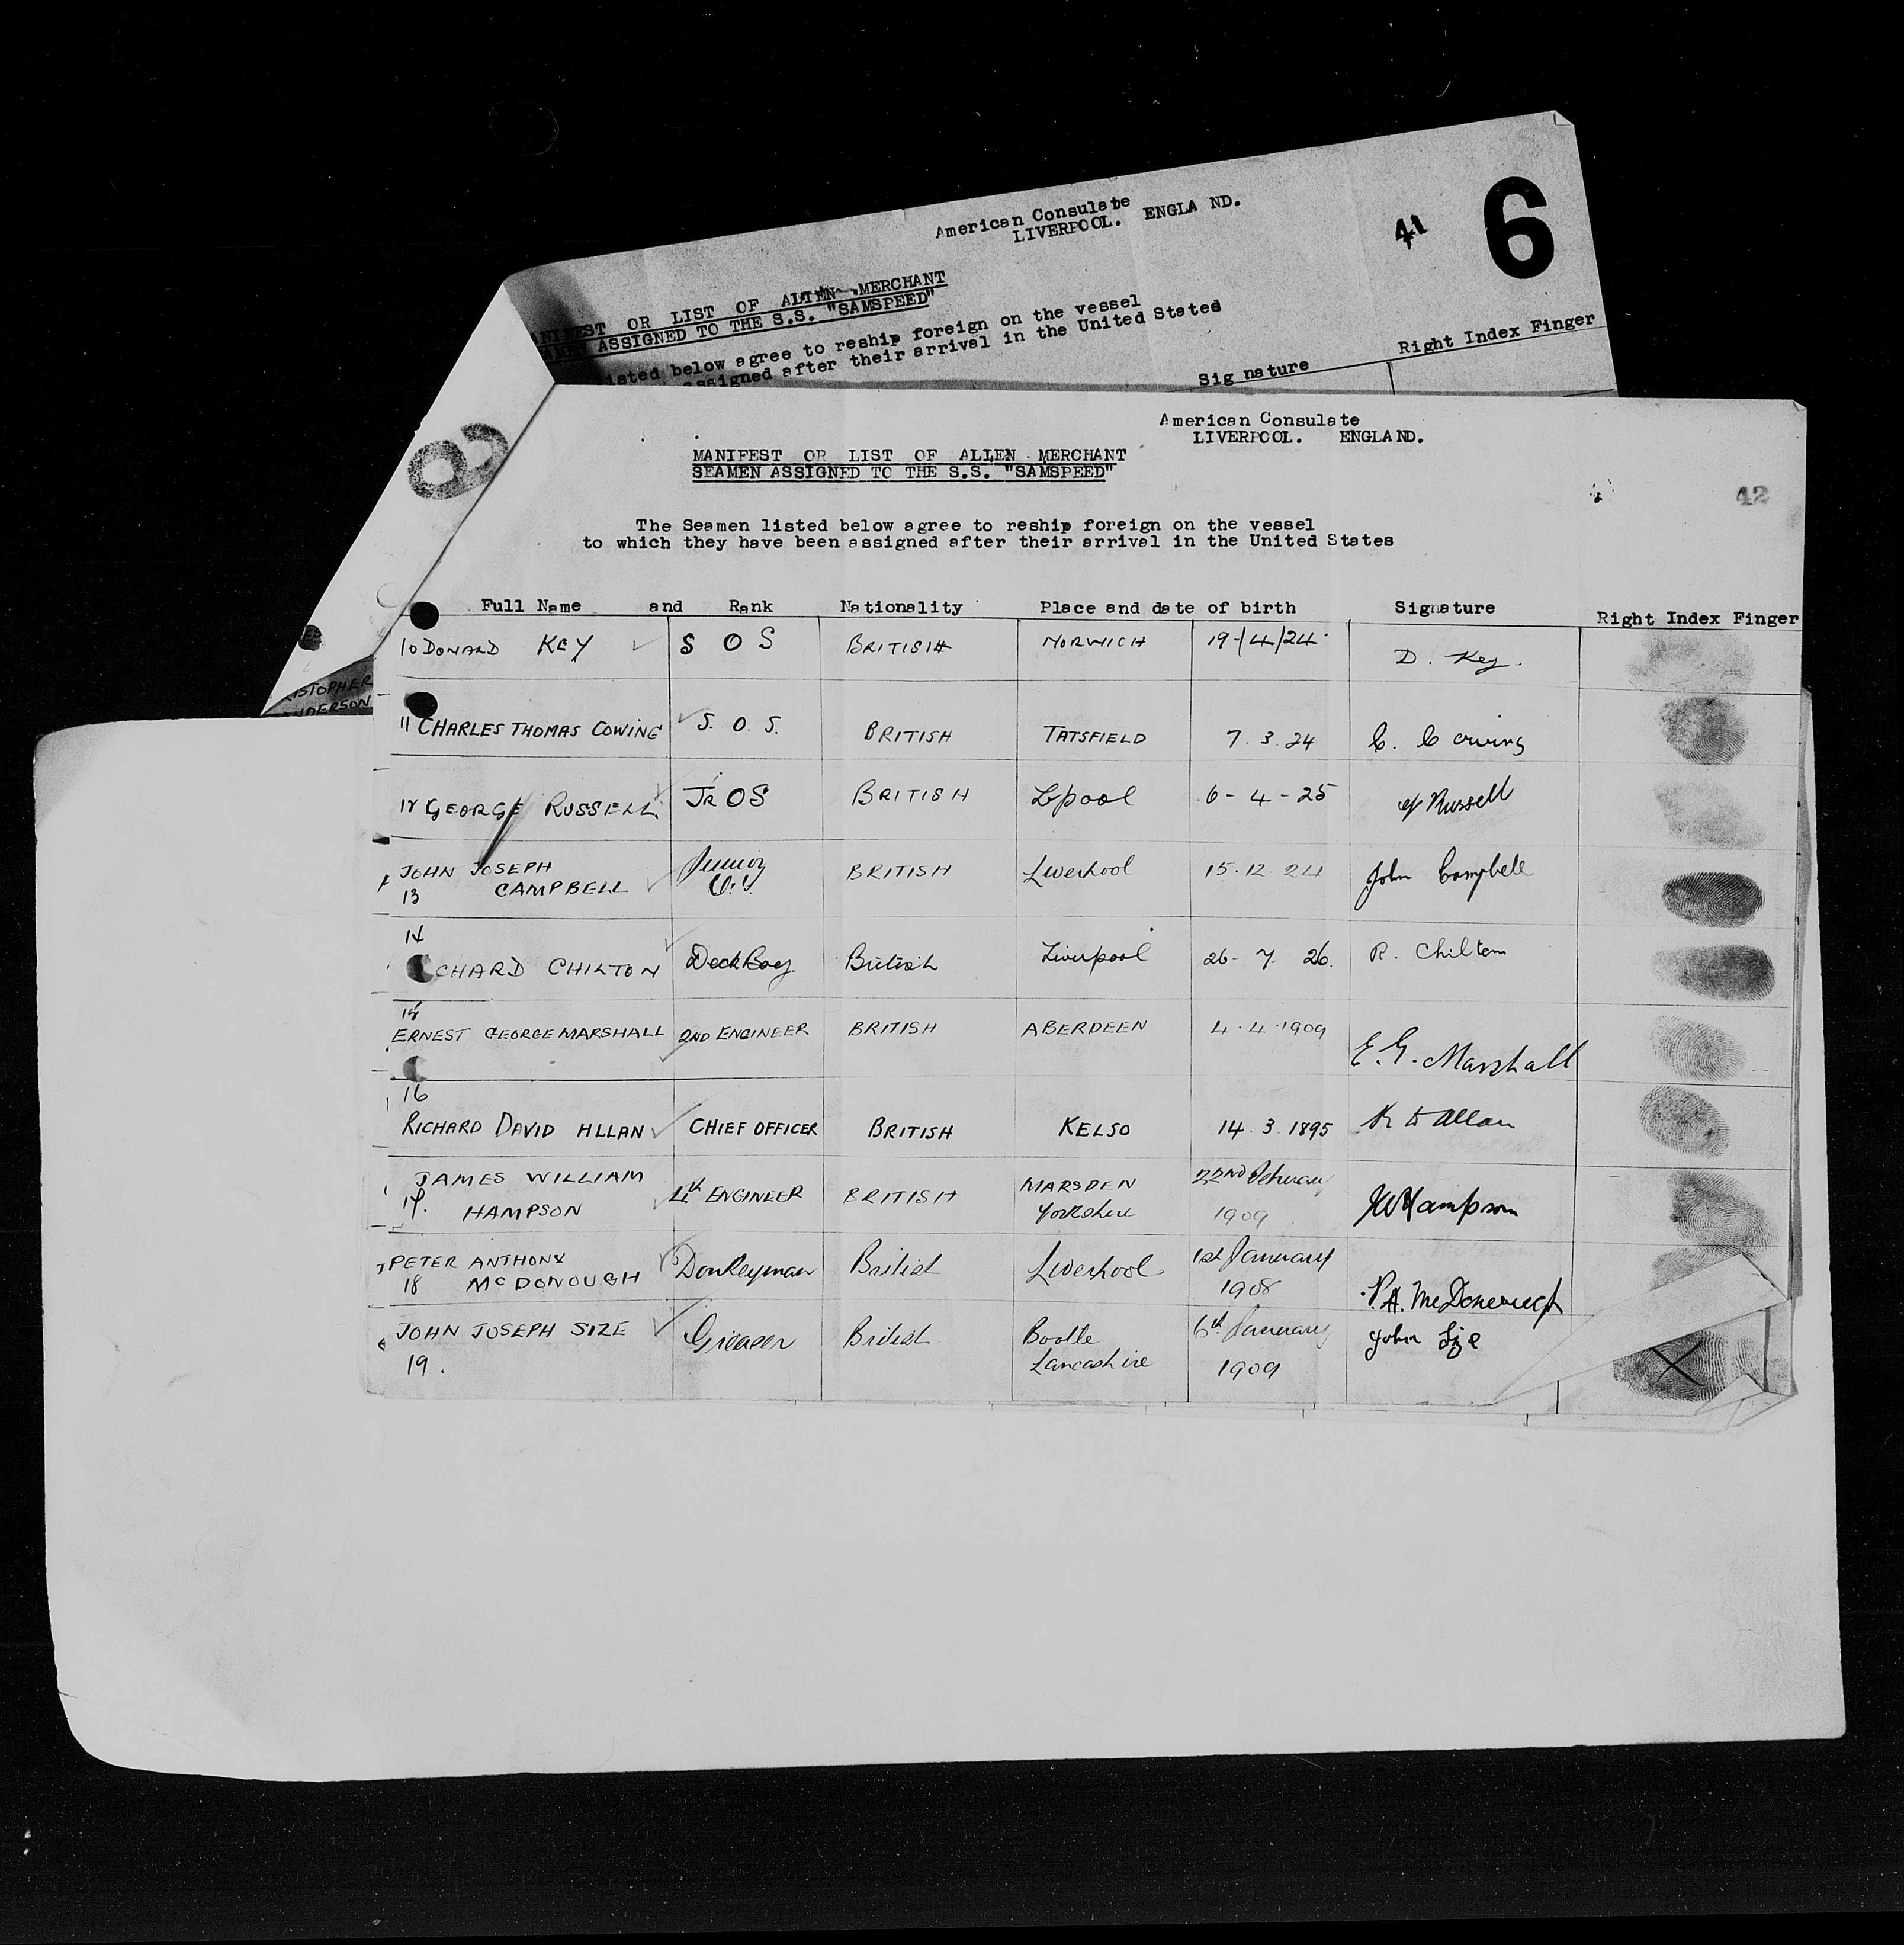 American Consulate
LIVERPOOL. ENGLA ND.
41
6
OR LIST OF ALIEN MERCHANT
ASSIGNED TO THE S.S. "SAMSPEED"
listed below agree to reship foreign on the vessel
assigned after their arrival in the United States
Signature
Right Index Finger
American Consulate
LIVERPOOL. ENGLAND.
MANIFEST OR LIST OF ALIEN MERCHANT
SEAMEN ASSIGNED TO THE S.S. "SAMSPEED"
42
The Seamen listed below agree to reship foreign on the vessel
to which they have been assigned after their arrival in the United States
Full Name and Rank Nationality Place and date of birth Signature Right Index Finger
10 DONALD KEY S O S BRITISH NORWICH 19/4/24 D. Key.
11 CHARLES THOMAS COWING S. O. S. BRITISH TATSFIELD 7. 3. 24 C. Cowing
12 GEORGE RUSSELL JR OS BRITISH L'pool 6-4-25 G Russell
JOHN JOSEPH
13 CAMPBELL Junior O.S. BRITISH Liverpool 15.12.24 John Campbell
14
CHARD CHILTON Deck Boy British Liverpool 26-7 26. R. Chilton
15
ERNEST GEORGE MARSHALL 2ND ENGINEER BRITISH ABERDEEN 4.4.1909 E. G. Marshall
16
RICHARD DAVID ALLAN CHIEF OFFICER BRITISH KELSO 14. 3. 1895 R D Allan
JAMES WILLIAM
17. HAMPSON 4th ENGINEER BRITISH MARSDEN Yorkshire 22ND February 1909 JWHampson
PETER ANTHONY
18 McDONOUGH Donkeyman British Liverpool 1st January 1908 P.A. McDonough
JOHN JOSEPH SIZE
19. Greaser British Bootle Lancashire 6th January 1909 John Size